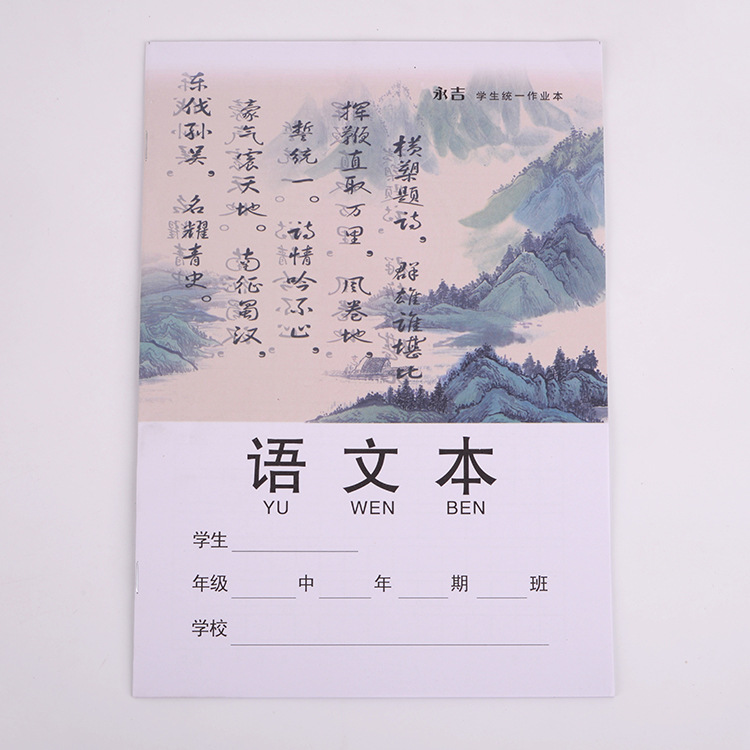 永吉 学生统一作业本
横槊题诗，群雄谁堪比
挥鞭直取万里，风卷地，
誓统一。诗情吟不止，
豪气震天地。南征蜀汉，
东伐孙吴，名耀青史。
语文本
YU WEN BEN
学生
年级 中 年 期 班
学校